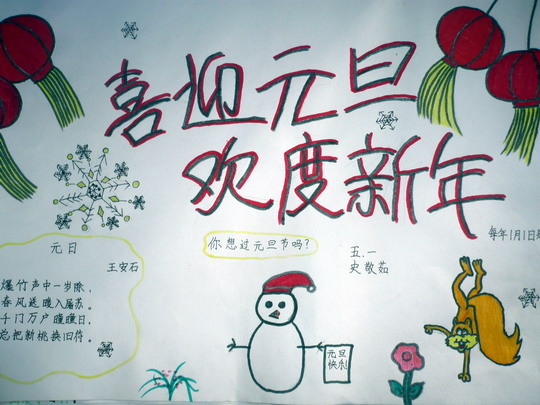 喜迎元旦
欢度新年
每年1月1日是
你想过元旦节吗?
五.一
史敬茹
元日
王安石
爆竹声中一岁除,
春风送暖入屠苏。
千门万户曈曈日,
总把新桃换旧符。
元旦
快乐!